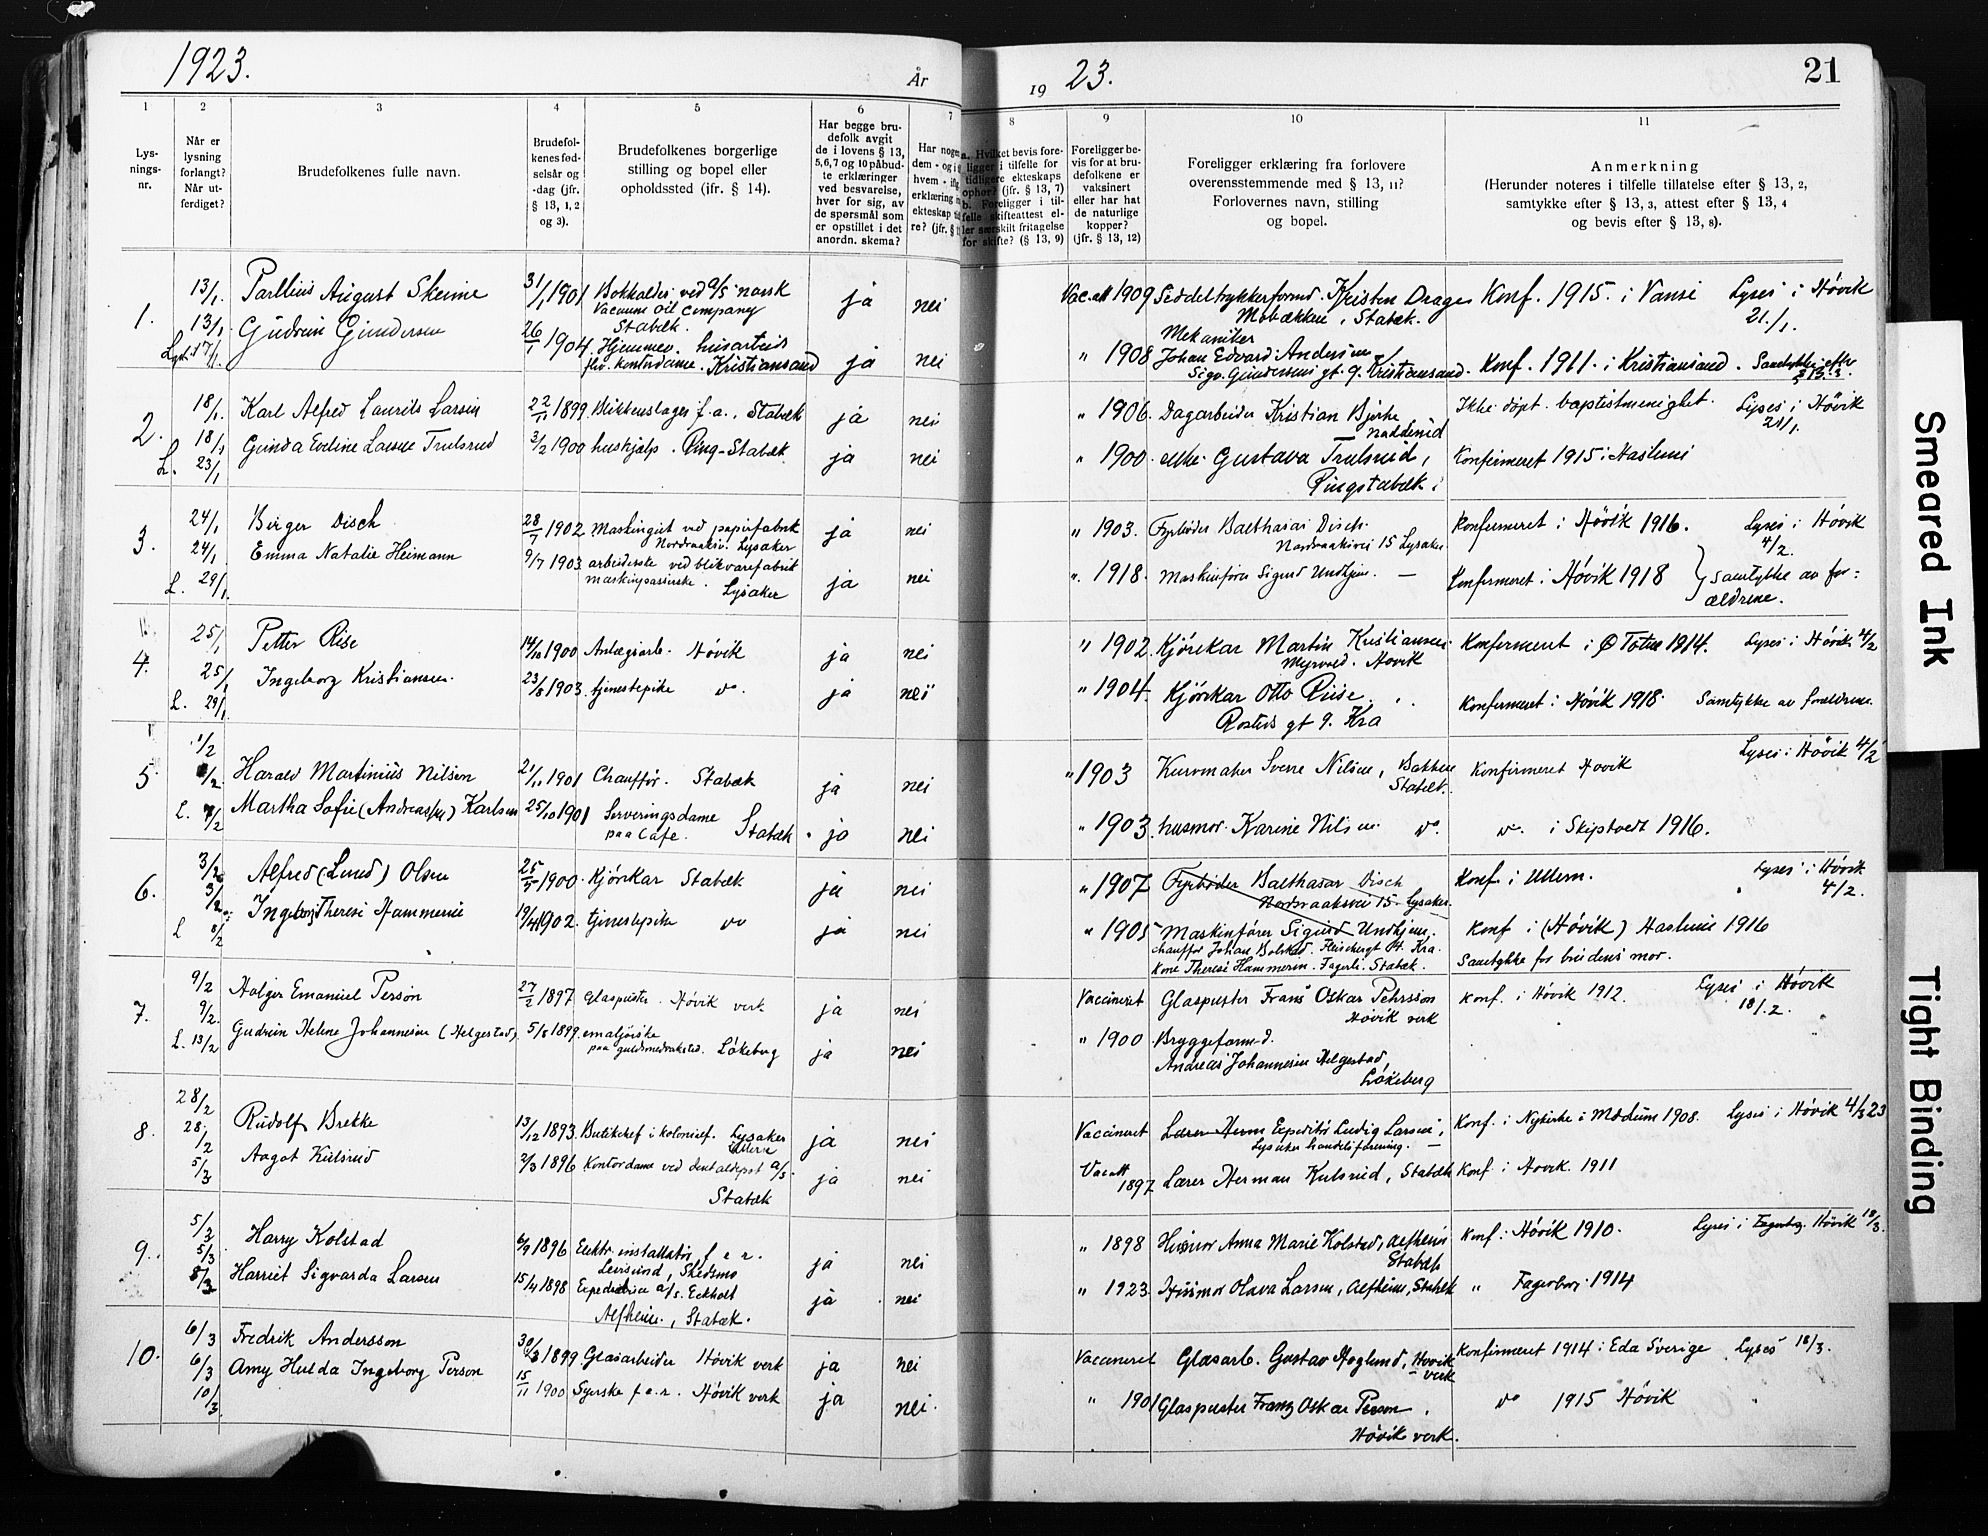 1923.
År
19 23.
21
1
2
3
4
5
6
7
8
9
10
11
Lys-
nings-
nr.
Når er
lysning
forlangt?
Når ut-
ferdiget?
Brudefolkenes fulle navn.
Brudefol-
kenes fød-
selsår og
-dag (jfr.
§ 13, 1, 2
og 3).
Brudefolkenes borgerlige
stilling og bopel eller
opholdssted (jfr. § 14).
Har begge bru-
defolk avgit
de i lovens § 13,
5,6,7 og 10 påbud-
te erklæringer
ved besvarelse,
hver for sig, av
de spørsmål som
er opstillet i det
anordn. skema?
Har nogen
dem - og i
hvem -
erklæring
ekteskap
re? (jfr. §
a. Hvilket bevis fore-
ligger i tilfelle for
tidligere ekteskaps
ophør? (jfr. § 13, 7)
b. Foreligger i til-
felle skifteattest el-
ler særskilt fritagelse
for skifte? (§ 13, 9)
Foreligger be-
vis for at bru-
defolkene er
vaksinert
eller har hat
de naturlige
kopper?
(jfr. § 13, 12)
Foreligger erklæring fra forlovere
overensstemmende med § 13, 11?
Forlovernes navn, stilling
og bopel.
Anmerkning
(Herunder noteres i tilfelle tillatelse efter § 13, 2,
samtykke efter § 13, 3, attest efter § 13, 4
og bevis efter § 13, 8).
1. 13/1. August Skeime 31/1 1901 Bokholder ved A/S norsk
Vacuum Oil Company
Stabæk. ja nei Vac.att 1909 Kristen Drage
Stabæk. Konf. 1915. i Vanse Lyses i Høvik
21/1.
13/1. Gudrun Gundersen 26/1 1904
Kristiansand ja nei " 1908 Mekaniker
Johan Edvard Andersen
Kristiansand. Konf. 1911. i Kristiansand. Samtykke efter
§ 13.3.
17/1.
2. 18/1. Karl Alfred Laurits Larsen 22/11 1899 Blikkenslager f.a., Stabæk ja nei " 1906. Dagarbeider Kristian Bjerke
Ikke døpt. baptistmenighet. Lyses i Høvik
21/1.
18/1 Gunda Eveline Larsen Trulsrud 3/2 1900 hushjelp. Ring-Stabæk ja nei " 1900. Gustava Trulsrud,
Ringstabæk Konfirmeret 1915 i Haslum
L. 23/1
3. 24/1 Birger Disch 28/7 1902 Maskingut ved papirfabrik
Lysaker ja nei " 1903. Fyrbøder Balthasar Disch.
Nordraaksvei 15 Lysaker Konfirmeret i Høvik 1916. Lyses i Høvik
4/2.
24/1 Emma Natalie Heimann 9/7 1903 arbeiderske ved blikvarefabrik
Lysaker ja nei " 1918. Maskinfører Sigurd Undhjem. — Konfirmeret i Høvik 1918 } Samtykke av for=
ældrene.
L. 29/1.
4. 25/1 Petter Rise 14/10 1900 Anlægsarb. Høvik ja nei " 1902. Kjørekar Martin Kristiansen
Myrvold. Høvik Konfirmeret i Ø Toten 1914. Lyses i Høvik 4/2
25/1 Ingeborg Kristiansen. 23/8 1903. tjenestepike do. ja nei " 1904. Kjørekar Otto Riise
gt 9. Kra Konfirmeret i Høvik 1918. Samtykke av forældrene.
L. 29/1.
5. 1/2 Harald Martinius Nilsen 21/11 1901 Chauffør. Stabæk ja nei " 1903 Kurvmaker Sverre Nilsen, Bakken
Stabæk. Konfirmeret Høvik Lyses i Høvik 4/2
1/2 Martha Sofie (Andreassen) Karlsen 25/10 1901 Serveringsdame
paa Cafe. Stabæk. ja nei " 1903. husmor. Karine Nilsen do. do. i Skiptvedt 1916.
L. 7/2
6. 3/2 Alfred (Lund) Olsen 25/5 1900. Kjørekar Stabæk ja nei " 1907 Fyrbøder Balthasar Disch
Nordraaksvei 15. Lysaker. Konf. i Ullern. Lyses i Høvik
4/2.
3/2. Ingeborg Therese Hammerin 19/4 1902. tjenestepike do ja nei " 1905 Maskinfører Sigurd Undhjem.
chauffør Johan Bolstad. Kra.
Kone Therese Hammerin. Fagerli. Stabæk. Konf i (Høvik) Haslum 1916
Samtykke for brudens mor.
L 8/2
7. 9/2 Holger Emanuel Person 27/2 1897 Glaspuster. Høvik verk ja nei Vaccineret Glaspuster Frans Oskar Pehrsson
Høvik verk Konf. i Høvik 1912. Lyses i Høvik
18/2.
9/2. Gudrun Helene Johannesen (Helgestad) 5/8 1899. emaljørske
Løkeberg ja nei " 1900 Bryggeformd.
Andreas Johannesen Helgestad,
Løkeberg
L. 13/2
8. 28/2 Rudolf Brekke 13/12 1893. Butikchef i kolonialf. Lysaker ja nei Vaccineret Lærer Herm Expeditør Ludvig Larsen,
Lysaker handelsforening. Konf. i Nykirke i Modum 1908. Lyses i Høvik 4/3 23
28/2 Aagot Kulsrud 2/3 1896 Kontordame ved dentaldepot A/S
Stabæk ja nei Vac att
1897 Lærer Herman Kulsrud, Stabæk Konf. i Høvik. 1911
5/3
9. 5/3 Harry Kolstad 6/9 1896 Elektr. installatør f e r.
Skedsmo ja nei " 1898 Husmor Anna Marie Kolstad, Alfheim
Stabæk Konf. i Høvik 1910. Lyses i Fagerborg. Høvik 18/3.
5/3 Harriet Sigvarda Larsen 15/4 1898 Expeditrice A/S. Eckholt
Alfheim, Stabæk. ja nei " 1923. Husmor Olava Larsen, Alfheim, Stabæk " Fagerborg. 1914
8/3
10. 6/3 Fredrik Andersson 30/3 1899 Glasarbeider Høvik verk ja nei Vaccineret Glasarb. Gustav Hoglund, Høvik
verk Konfirmeret 1914 i Eda Sverige Lyses 18/3.
6/3 Amy Hulda Ingeborg Person 15/11 1900 Syerske f.e.r. Høvik verk ja nei. " 1901 Glaspuster Franz Oskar Person
Høvik verk. do 1915 Høvik "
10/3.
Smeared Ink
Tight Binding